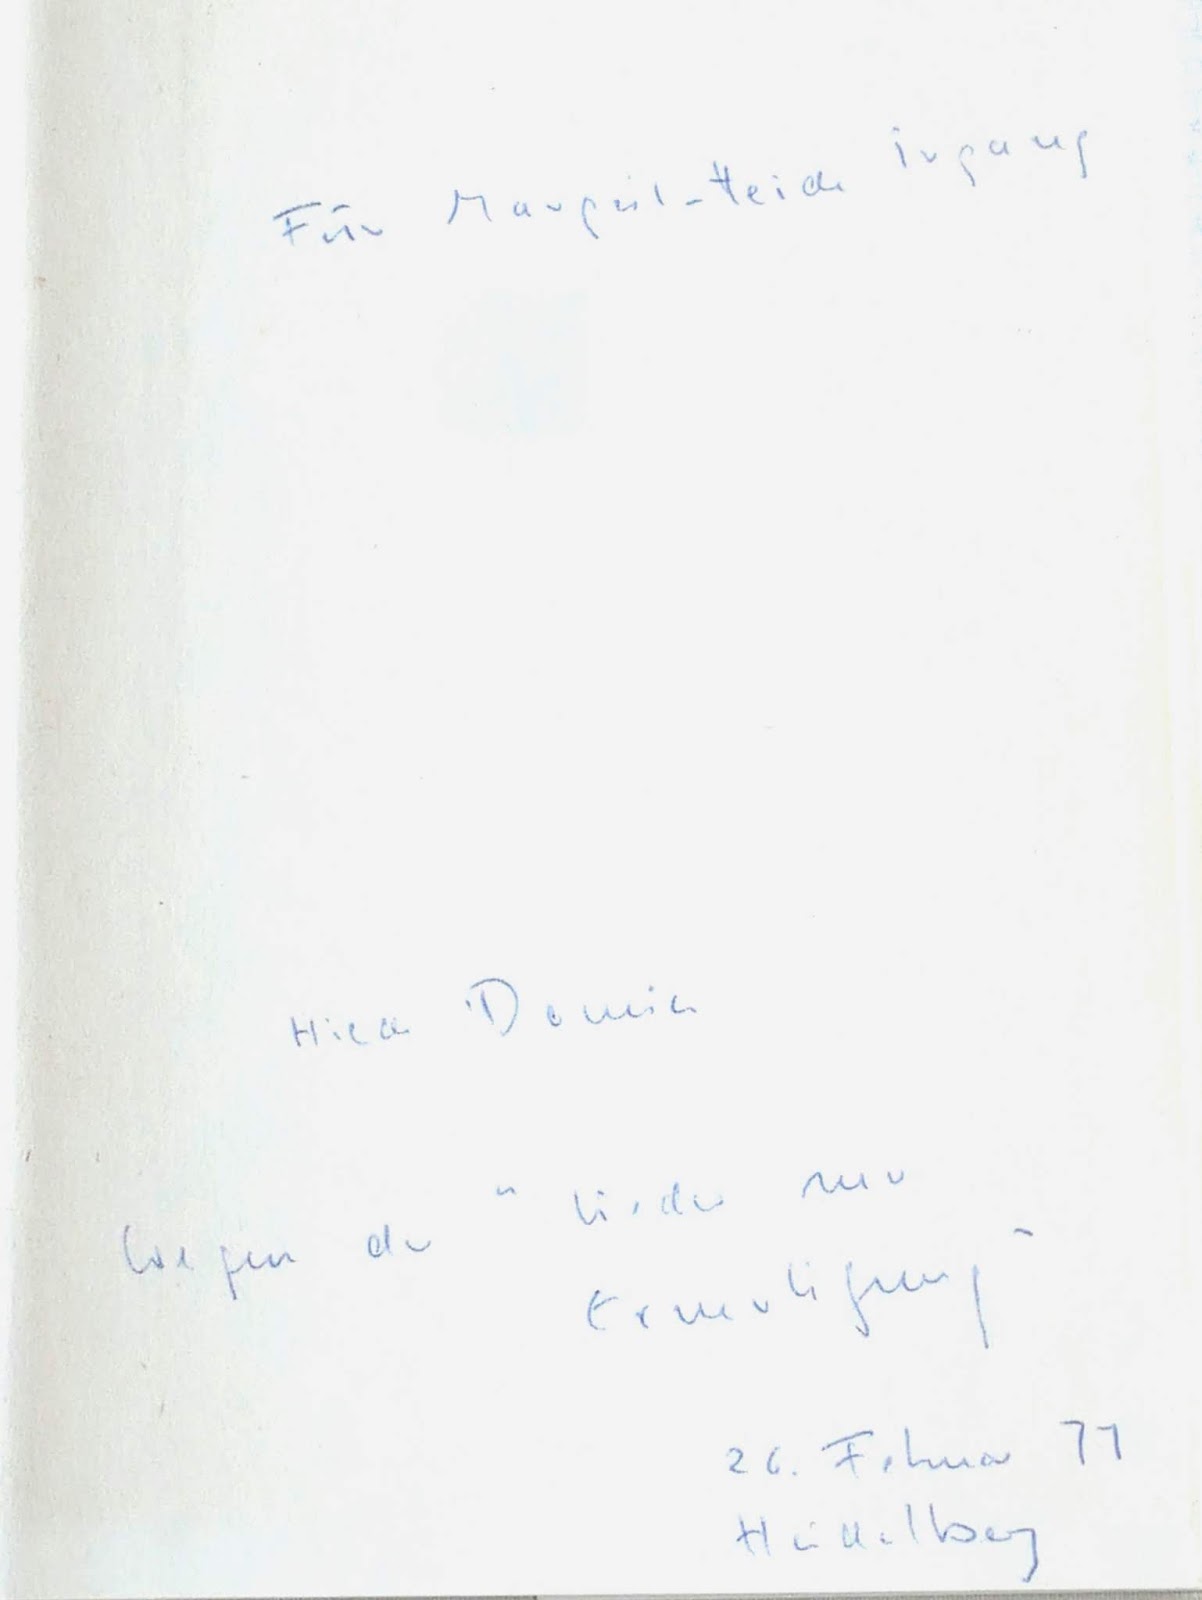 Für Margrit-Heide Irgang
Hilde Domin
Wegen der "Lieder zur
Ermutigung"
26. Februar 77
Heidelberg